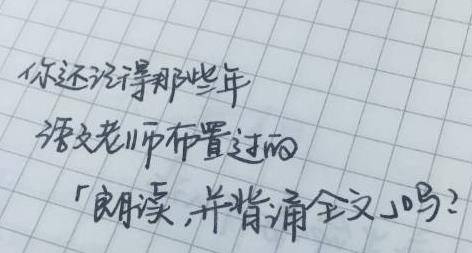 你还记得那些年
语文老师布置过的
「朗读,并背诵全文」吗?